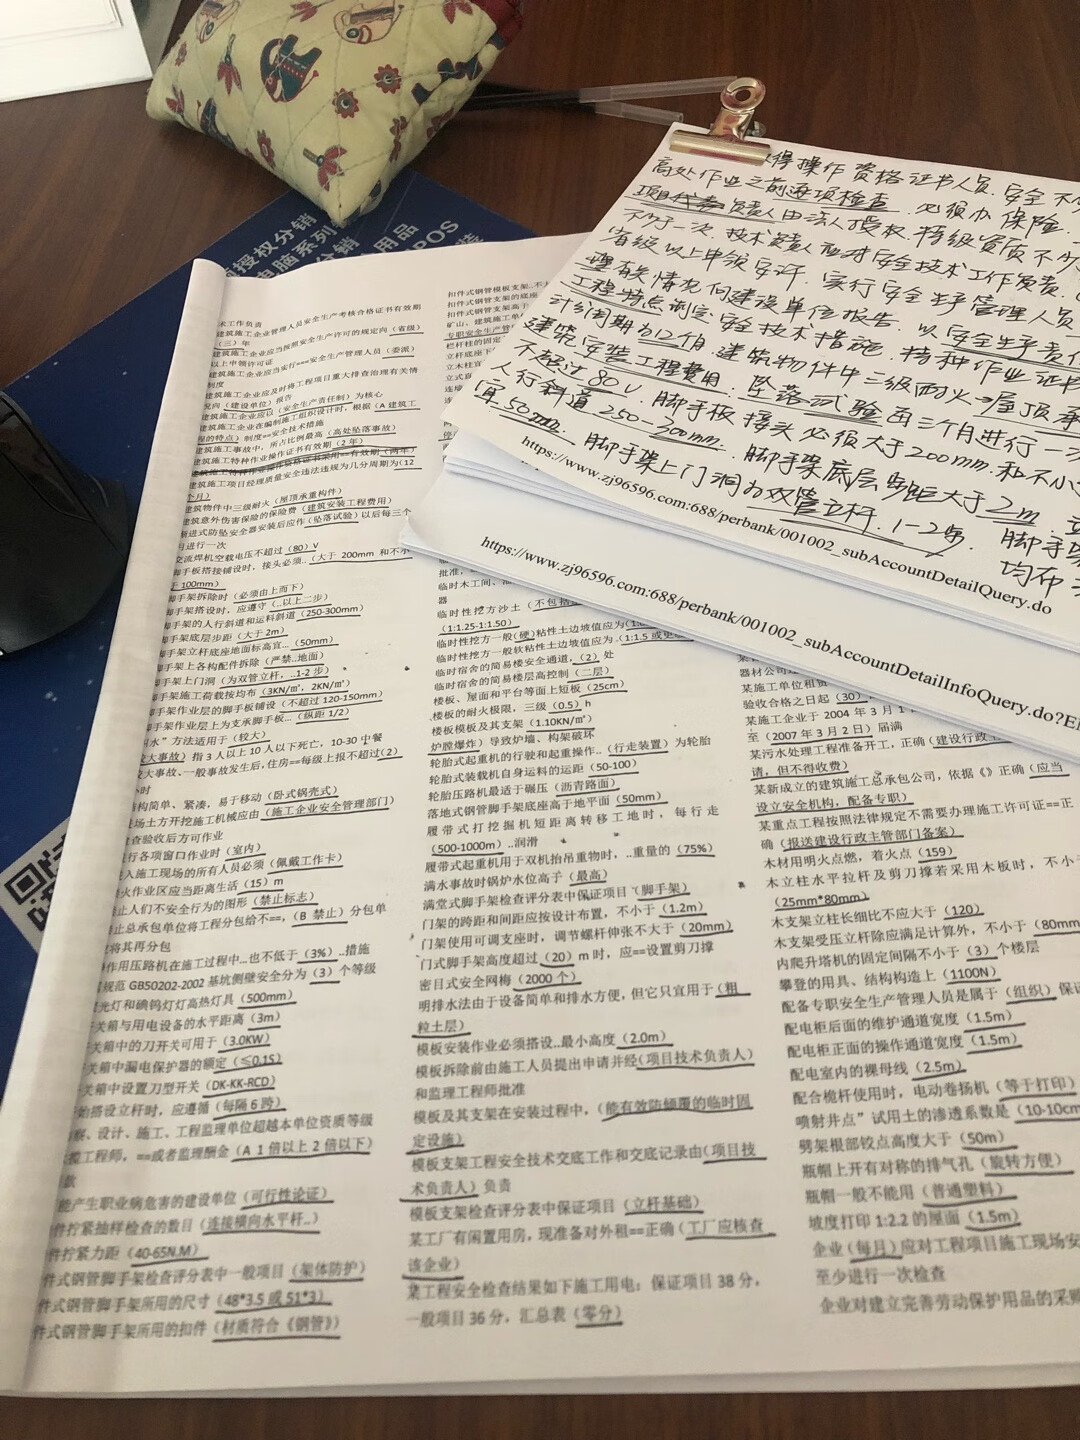 授权分销
电脑系列
分销
用品
POS
得操作资格证书人员.安全不
高处作业之前逐项检查.必须办保险.
负责人由法人授权.特级资质不
不少于一次.技术负责人应对安全技术工作负责.
省级以上申领安许.实行安全生产管理人员
理有关情况向建设单位报告.以安全生产责任
工程特点制定安全技术措施.特种作业证书
计分周期为12个月.建筑物件中三级耐火→屋顶承
建筑安装工程费用.坠落试验每三个月进行一次
不超过80V.脚手板接头必须大于200mm.和不小
人行斜道250-300mm.脚手架底层步距大于2m.
宜50mm.脚手架上门洞为双管立杆.1-2步.脚手架
均布
https://www.zj96596.com:688/perbank/001002_subAccountDetailQuery.do
https://www.zj96596.com:688/perbank/001002_subAccountDetailInfoQuery.do?E
术工作负责
建筑施工企业管理人员安全生产考核合格证书有效期
（三）年
建筑施工企业应当按照安全生产许可的规定向（省级）
以上申领许可证
建筑施工企业应当实行===安全生产管理人员（委派）
制度
建筑施工企业应及时将工程项目重大排查治理有关情
况向（建设单位）报告
建筑施工企业应以（安全生产责任制）为核心
建筑施工企业在编制施工组织设计时，根据（A 建筑工
程的特点）制度==安全技术措施
建筑施工事故中，所占比例最高（高处坠落事故）
建筑施工特种作业操作证书有效期（2 年）
建筑施工特种作业操作资格证书采用==有效期（两年）
建筑施工项目经理质量安全违法违规为几分周期为（12
个月）
建筑物件中三级耐火（屋顶承重构件）
建筑意外伤害保险的保险费（建筑安装工程费用）
渐进式防坠安全器安装后应作（坠落试验）以后每三个
月进行一次
交流焊机空载电压不超过（80）V
脚手板搭接铺设时，接头必须..（大于 200mm 和不小
于 100mm）
脚手架拆除时（必须由上而下）
脚手架搭设时，应遵守（..以上二步）
脚手架的人行斜道和运料斜道（250-300mm）
脚手架底层步距（大于 2m）
脚手架立杆底座地面标高宜...（50mm）
脚手架上各构配件拆除（严禁..地面）
脚手架上门洞（为双管立杆，..1-2 步）
脚手架施工荷载按均布（3KN/㎡，2KN/㎡）
脚手架作业层的脚手板铺设（不超过 120-150mm）
脚手架作业层上为支承脚手板...（纵距 1/2）
水”方法适用于（较大）
较大事故）指 3 人以上 10 人以下死亡，10-30 中餐
大事故、一般事故发生后，住房==每级上报不超过（2）
小时
结构简单、紧凑，易于移动（卧式锅壳式）
现场土方开挖施工机械应由（施工企业安全管理部门）
检查验收后方可作业
进行各项窗口作业时（室内）
进入施工现场的所有人员必须（佩戴工作卡）
火作业区应当距离生活（15）m
禁止人们不安全行为的图形（禁止标志）
禁止总承包单位将工程分包给不==，（B 禁止）分包单
位将其再分包
作用压路机在施工过程中...也不低于（3%）..措施
规范 GB50202-2002 基坑侧壁安全分为（3）个等级
光灯和碘钨灯灯高热灯具（500mm）
开关箱与用电设备的水平距离（3m）
开关箱中的刀开关可用于（3.0KW）
开关箱中漏电保护器的额定（≤0.1S）
开关箱中设置刀型开关（DK-KK-RCD）
始搭设立杆时，应遵循（每隔 6 跨）
勘察、设计、施工、工程监理单位超越本单位资质等级
工程师，==或者监理酬金（A 1 倍以上 2 倍以下）
款
能产生职业病危害的建设单位（可行性论证）
件拧紧抽样检查的数目（连接横向水平杆..）
件拧紧力距（40-65N.M）
件式钢管脚手架检查评分表中一般项目（架体防护）
件式钢管脚手架所用的尺寸（48*3.5 或 51*3）
件式钢管脚手架所用的扣件（材质符合《钢管》）
扣件式钢管模板支架..不
扣件式钢管支架的底座
扣件式钢管支架高于
矿山、建筑施工单
专职安全生产管
栏杆柱的固定
立杆底座下
立柱宜
立式直
连墙
批准，
临时木工间、油
器
临时性挖方沙土（不包括
（1:1.25-1:1.50）
临时性挖方一般(硬)粘性土边坡值应为（1:0
临时性挖方一般软粘性土边坡值应为.（1:1.5 或更
临时宿舍的简易楼安全通道，（2）处
临时宿舍的简易楼层高控制（二层）
楼板、屋面和平台等面上短板（25cm）
楼板的耐火极限，三级（0.5）h
楼板模板及其支架（1.10KN/㎡）
炉膛爆炸）导致炉墙、构架破坏
轮胎式起重机的行驶和起重操作..（行走装置）为轮胎
轮胎式装载机自身运料的运距（50-100）
轮胎压路机最适于碾压（沥青路面）
落地式钢管脚手架底座高于地平面（50mm）
履带式打挖掘机短距离转移工地时，每行走
（500-1000m）..润滑
履带式起重机用于双机抬吊重物时，..重量的（75%）
满水事故时锅炉水位高于（最高）
满堂式脚手架检查评分表中保证项目（脚手架）
门架的跨距和间距应按设计布置，不小于（1.2m）
门架使用可调支座时，调节螺杆伸张不大于（20mm）
门式脚手架高度超过（20）m 时，应==设置剪刀撑
密目式安全网梅（2000 个）
明排水法由于设备简单和排水方便，但它只宜用于（粗
粒土层）
模板安装作业必须搭设..最小高度（2.0m）
模板拆除前由施工人员提出申请并经（项目技术负责人）
和监理工程师批准
模板及其支架在安装过程中，（能有效防倾覆的临时固
定设施）
模板支架工程安全技术交底工作和交底记录由（项目技
术负责人）负责
模板支架检查评分表中保证项目（立杆基础）
某工厂有闲置用房，现准备对外租==正确（工厂应核查
该企业）
某工程安全检查结果如下施工用电：保证项目 38 分，
一般项目 36 分，汇总表（零分）
器材公司
某施工单位租赁
验收合格之日起（30）
某施工企业于 2004 年 3 月 1
至（2007 年 3 月 2 日）届满
某污水处理工程准备开工，正确（建设行政
请，但不得收费）
某新成立的建筑施工总承包公司，依据《》正确（应当
设立安全机构，配备专职）
某重点工程按照法律规定不需要办理施工许可证==正
确（报送建设行政主管部门备案）
木材用明火点燃，着火点（159）
木立柱水平拉杆及剪刀撑若采用木板时，不小于
（25mm*80mm）
木支架立柱长细比不应大于（120）
木支架受压立杆除应满足计算外，不小于（80mm
内爬升塔机的固定间隔不小于（3）个楼层
攀登的用具、结构构造上（1100N）
配备专职安全生产管理人员是属于（组织）保证
配电柜后面的维护通道宽度（1.5m）
配电柜正面的操作通道宽度（1.5m）
配电室内的裸母线（2.5m）
配合桅杆使用时，电动卷扬机（等于打印）
喷射井点”试用土的渗透系数是（10-10cm
劈架根部铰点高度大于（50m）
瓶帽上开有对称的排气孔（旋转方便）
瓶帽一般不能用（普通塑料）
坡度打印 1:2.2 的屋面（1.5m）
企业（每月）应对工程项目施工现场安
至少进行一次检查
企业对建立完善劳动保护用品的采购